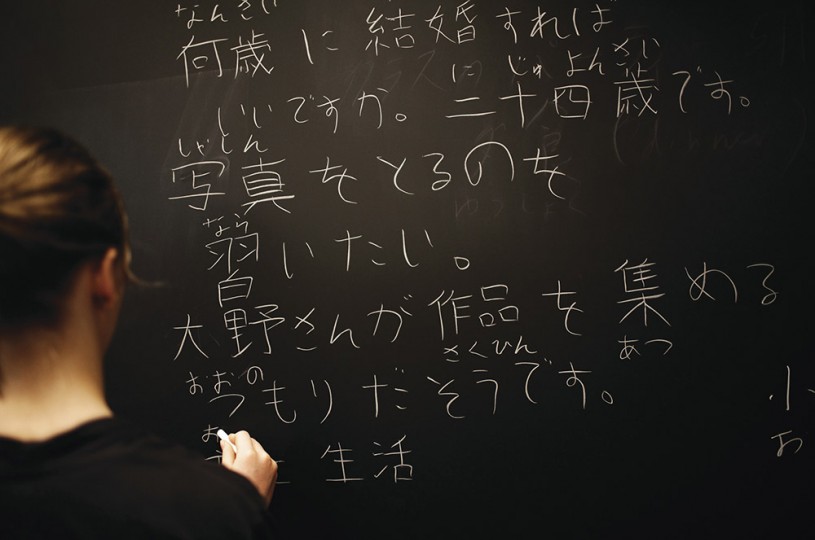 なんさい
何歳に結婚すれば
に じゅ よん さい
いいですか。二十四歳です。
写真をとるのを
なら
習いたい。
大野さんが作品を集める
おおの さくひん あつ
つもりだそうです。
お
生活
小
お